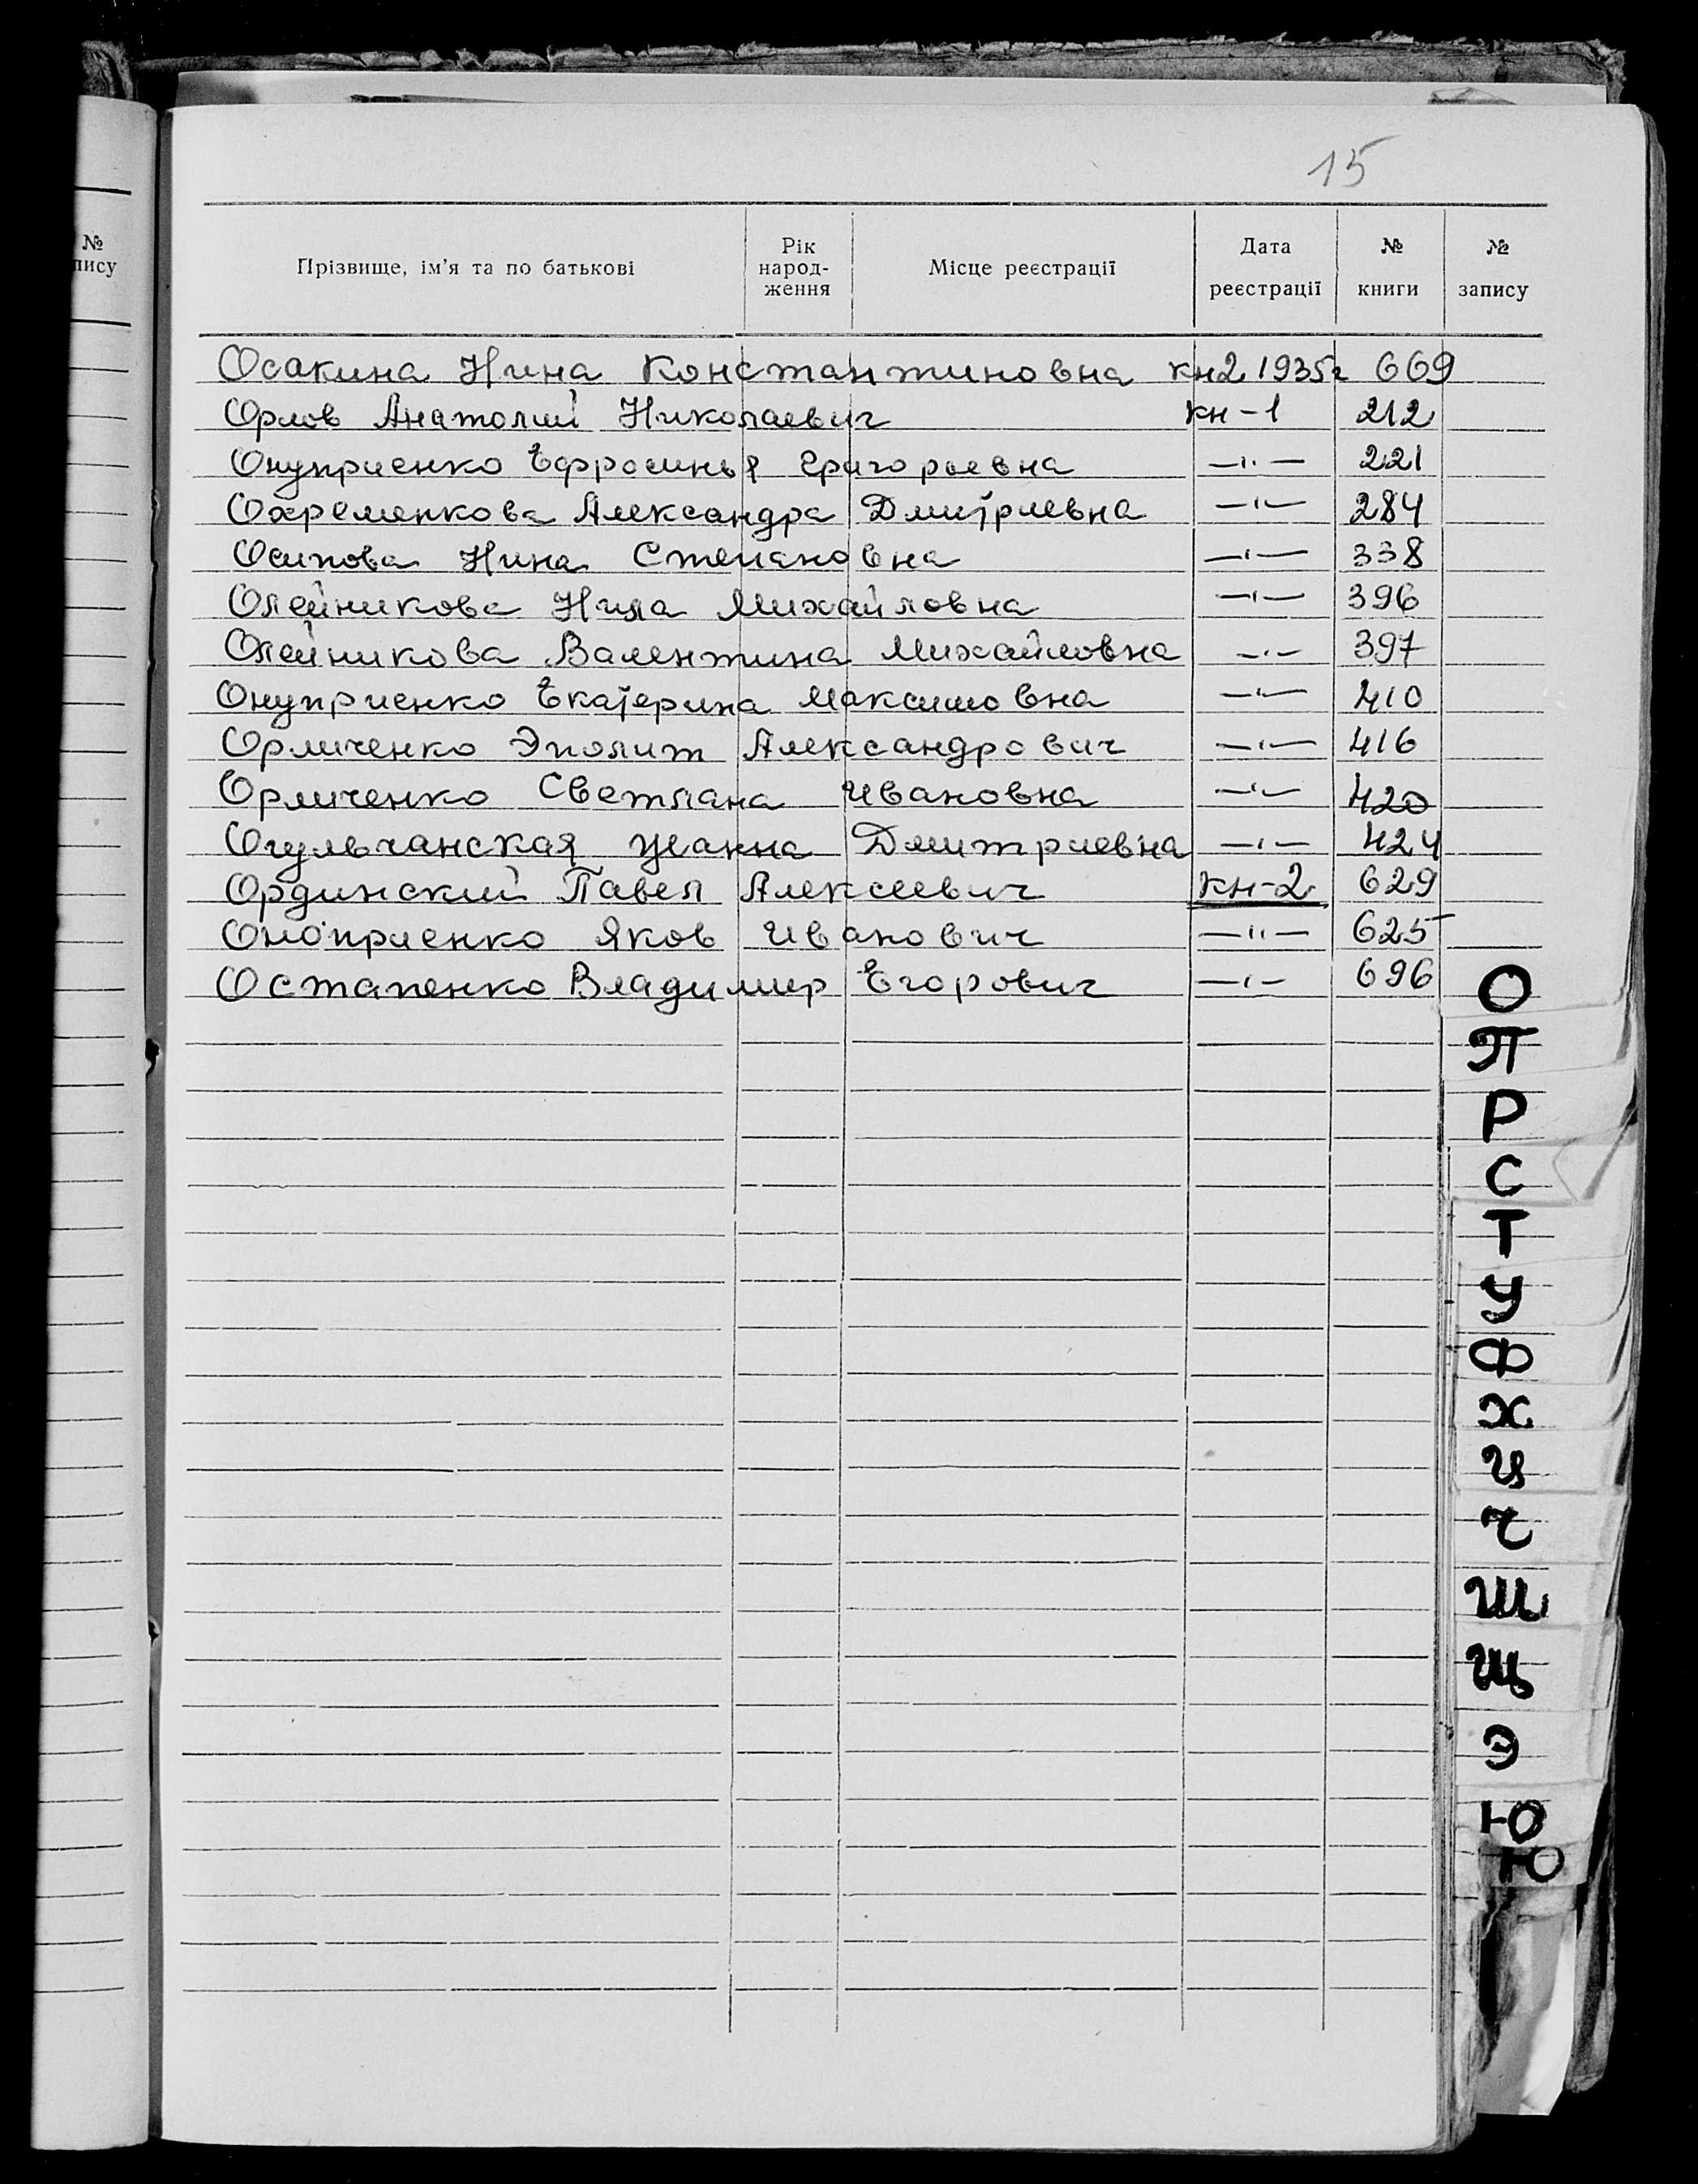 15
№
пису
Прізвище, ім'я та по батькові
Рік
народ-
ження
Місце реєстрації
Дата
реєстрації
№
книги
№
запису
Осакина Нина Константиновна кн2 1935г 669
Орлов Анатолий Николаевич кн-1 212
Онуприенко Ефросинья Григорьевна —"— 221
Охременкова Александра Дмитриевна —"— 284
Осипова Нина Степановна —"— 338
Олейникова Нила Михайловна —"— 396
Олейникова Валентина Михайловна —"— 397
Онуприенко Екатерина Максимовна —"— 410
Орличенко Эполит Александрович —"— 416
Орличенко Светлана Ивановна —"— 420
Огульчанская Жанна Дмитриевна —"— 424
Ординский Павел Алексеевич кн-2 629
Оноприенко Яков Иванович —"— 625
Остапенко Владимир Егорович —"— 696
О
П
Р
С
Т
У
Ф
Х
Ц
Ч
Ш
Щ
Э
Ю
Ю